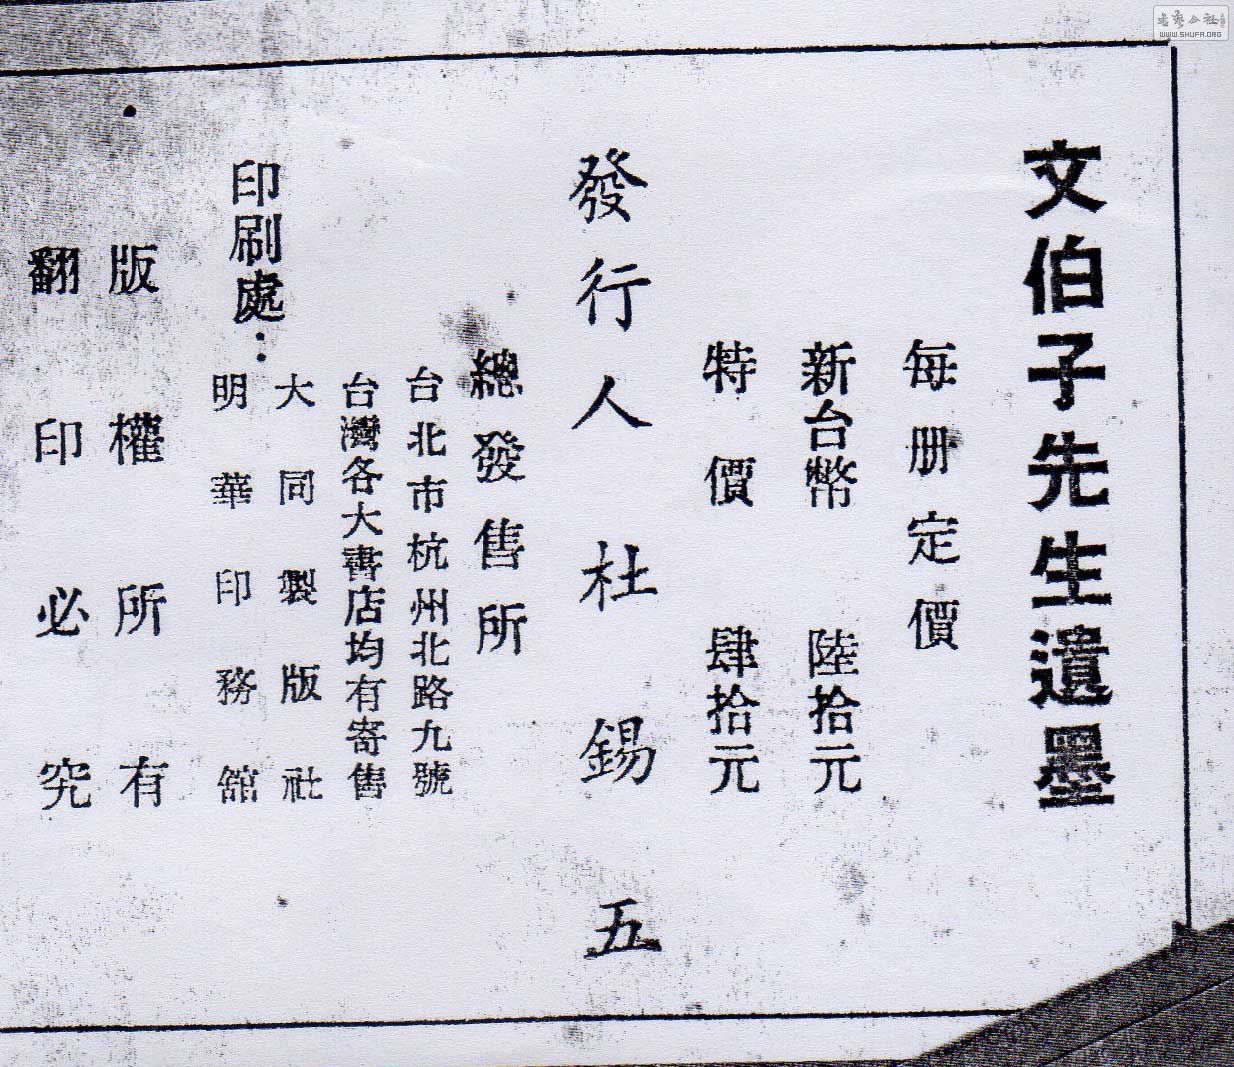 文伯子先生遺墨
每册定價
新台幣 陸拾元
特價 肆拾元
發行人 杜錫五
總發售所
台北市杭州北路九號
台灣各大書店均有寄售
印刷處：
大同製版社
明華印務舘
版權所有
翻印必究
WWW.SHUFA.ORG